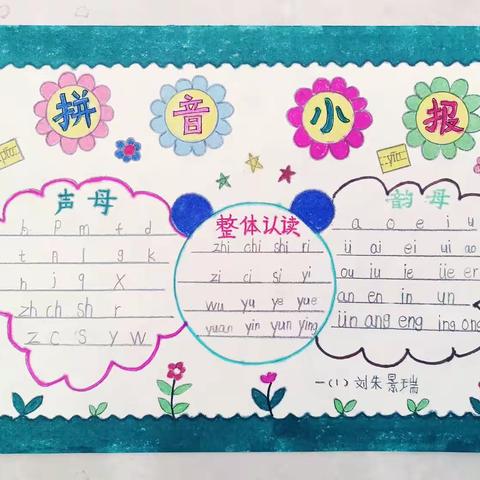 拼音小报
声母
b p m f d
t n l g k
h j q X
zh ch sh r
z c s y w
整体认读
zhi chi shi ri
zi ci si yi
wu yu ye yue
yuan yin yun ying
韵母
a o e i u
ü ai ei ui ao
ou iu ie üe er
an en in un
ün ang eng ing ong
一(1) 刘朱景瑞